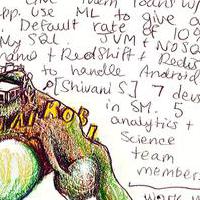 Give them loans w/
app. Use ML to give a
. Default rate of 10%
MySQL. SVM + NoSQ
namo + RedShift + Redis
to handle Android
[Shivani S.] 7 devs
in SM. 5
analytics +
Science
team
members